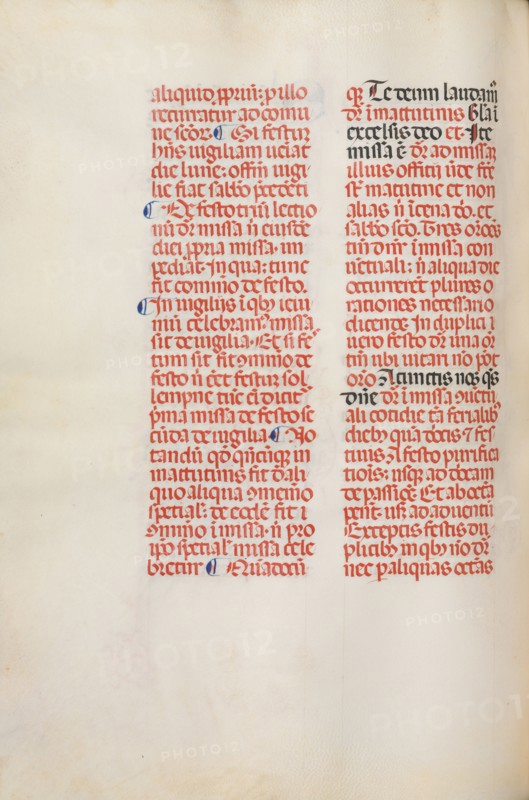 aliquid ꝓpriũ: ꝑ illo
recuratur ad comu
ne scõꝝ. ¶ Si festuꝫ
hñs uigiliam ueĩat
die lune: offm̃ uigi
lie fiat sabbo p̃cedẽti
¶ De festo triũ lectio
nũ dr̃ missa ñ eiusdẽ
diei ꝓpria missa. im
pediat. In qua: tunc
fit comm̃o de festo.
¶ In uigilijs ĩ qbꝫ ieiu
niũ celebram̃. missa
fit de uigilia. Et si fe
tum sit fit ꝯm̃mo de
festo ñ eẽt festuꝫ sol
lempne tũc eĩ dicit᷑
p̃ma missa de festo se
cũda de uigilia ¶ No
tandũ qð qñcũqꝫ in
mattutinis fit d̃ ali
quo aliqua ꝯmem̃o
spetial: de eodẽ fit ĩ
ꝯm̃mo ĩ missa. ñ pro
ip̃o spẽtial missa cele
bretur ¶
qꝫ Te deum laudam᷑
dr̃ ĩ mattutinis Gl̃a ĩ
excelsis deo et Ite
missa ẽ dr̃ ad missaꝫ
illius offitij ũde fit̃
st̃ matutine et non
alias ñ ĩ cena dõ. et
sabbo scõ. Tres or̃oẽs
tm̃ dñr ĩ missa con
uẽtuali: ñ aliqua die
occurrerẽt plures o
rationes necessario
dicende. In duplici ĩ
uero festo dr̃ una or̃
tm̃ ubi uitari nõ põt
or̃o A cunctis nos qs̃
dñe dr̃ ĩ missa ꝯuẽtu
ali cotidie tã ferialibꝫ
diebꝫ quã dõcis ⁊ fes
tiuis. A festo purifica
tiõis: usqꝫ ad dõcam
de passiõe. Et ab octa
pent̃. usqꝫ ad aduentũ
Exceptis festis du
plicibꝫ in qbꝫ nõ dr̃
nec ꝑ aliquas octãs